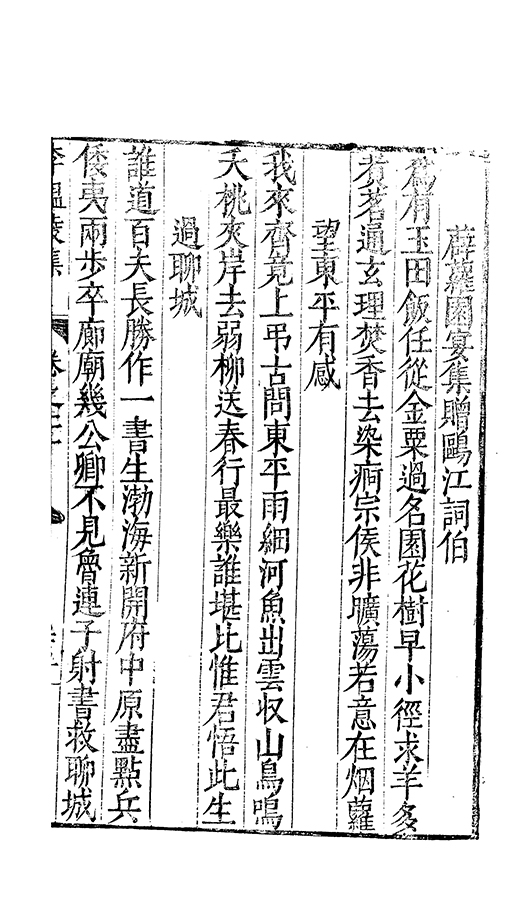 薜蘿園宴集贈鷗江詞伯
爲有玉田飯任從金粟過名園花樹早小徑求羊多
煑茗通玄理焚香去染痾宗侯非曠蕩若意在烟蘿
望東平有感
我來齊竟上弔古問東平雨細河魚出雲收山鳥鳴
夭桃夾岸去弱柳送春行最樂誰堪比惟君悟此生
過聊城
誰道百夫長勝作一書生渤海新開府中原盡點兵
倭夷兩步卒廊廟幾公卿不見魯連子射書救聊城
李溫陵集 卷之二十